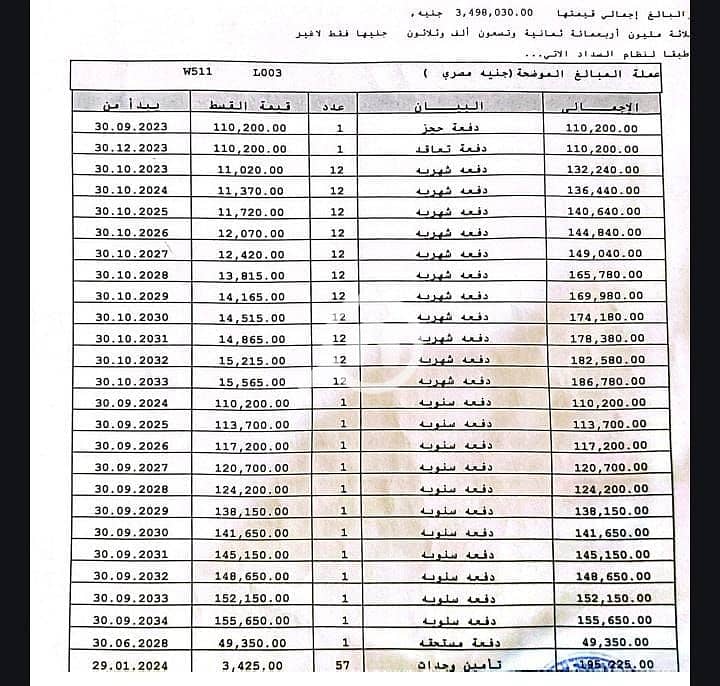 والبالغ إجمالي قيمتها 3,498,030.00 جنيه,
ثلاثة مليون أربعمائة ثمانية وتسعون ألف وثلاثون جنيها فقط لاغير
طبقا لنظام السداد الاتي...
عملة المبالغ الموضحة (جنيه مصري ) L003 W511
الإجمالي البيان عدد قيمة القسط يبدأ من
110,200.00 دفعة حجز 1 110,200.00 30.09.2023
110,200.00 دفعة تعاقد 1 110,200.00 30.12.2023
132,240.00 دفعه شهريه 12 11,020.00 30.10.2023
136,440.00 دفعه شهريه 12 11,370.00 30.10.2024
140,640.00 دفعه شهريه 12 11,720.00 30.10.2025
144,840.00 دفعه شهريه 12 12,070.00 30.10.2026
149,040.00 دفعه شهريه 12 12,420.00 30.10.2027
165,780.00 دفعه شهريه 12 13,815.00 30.10.2028
169,980.00 دفعه شهريه 12 14,165.00 30.10.2029
174,180.00 دفعه شهريه 12 14,515.00 30.10.2030
178,380.00 دفعه شهريه 12 14,865.00 30.10.2031
182,580.00 دفعه شهريه 12 15,215.00 30.10.2032
186,780.00 دفعه شهريه 12 15,565.00 30.10.2033
110,200.00 دفعه سنويه 1 110,200.00 30.09.2024
113,700.00 دفعه سنويه 1 113,700.00 30.09.2025
117,200.00 دفعه سنويه 1 117,200.00 30.09.2026
120,700.00 دفعه سنويه 1 120,700.00 30.09.2027
124,200.00 دفعه سنويه 1 124,200.00 30.09.2028
138,150.00 دفعه سنويه 1 138,150.00 30.09.2029
141,650.00 دفعه سنويه 1 141,650.00 30.09.2030
145,150.00 دفعه سنويه 1 145,150.00 30.09.2031
148,650.00 دفعه سنويه 1 148,650.00 30.09.2032
152,150.00 دفعه سنويه 1 152,150.00 30.09.2033
155,650.00 دفعه سنويه 1 155,650.00 30.09.2034
49,350.00 دفعة مستحقه 1 49,350.00 30.06.2028
195,225.00 تأمين وحدات 57 3,425.00 29.01.2024